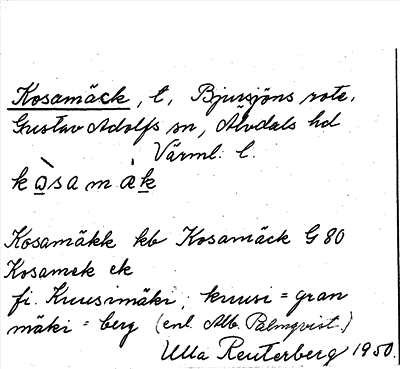 Kosamäck, t, Bjursjöns rote,
Gustav Adolfs sn, Älvdals hd
Värml. l.
kòsamàk
Kosamäkk kb Kosamäck G 80
Kosamek ek
fi. Kuusimäki, kuusi = gran
mäki = berg (enl. Alb. Palmqvist.)
Ulla Reuterberg 1950.